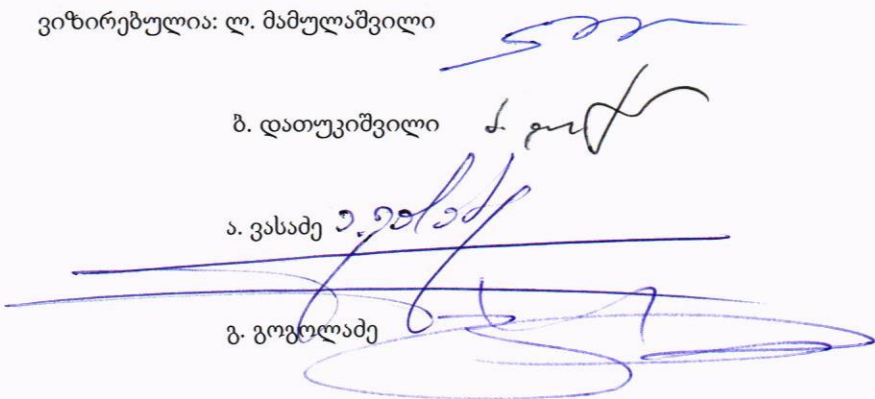 ვიზირებულია: ლ. მამულაშვილი
ბ. დათუკიშვილი
ა. ვასაძე
გ. გოგოლაძე